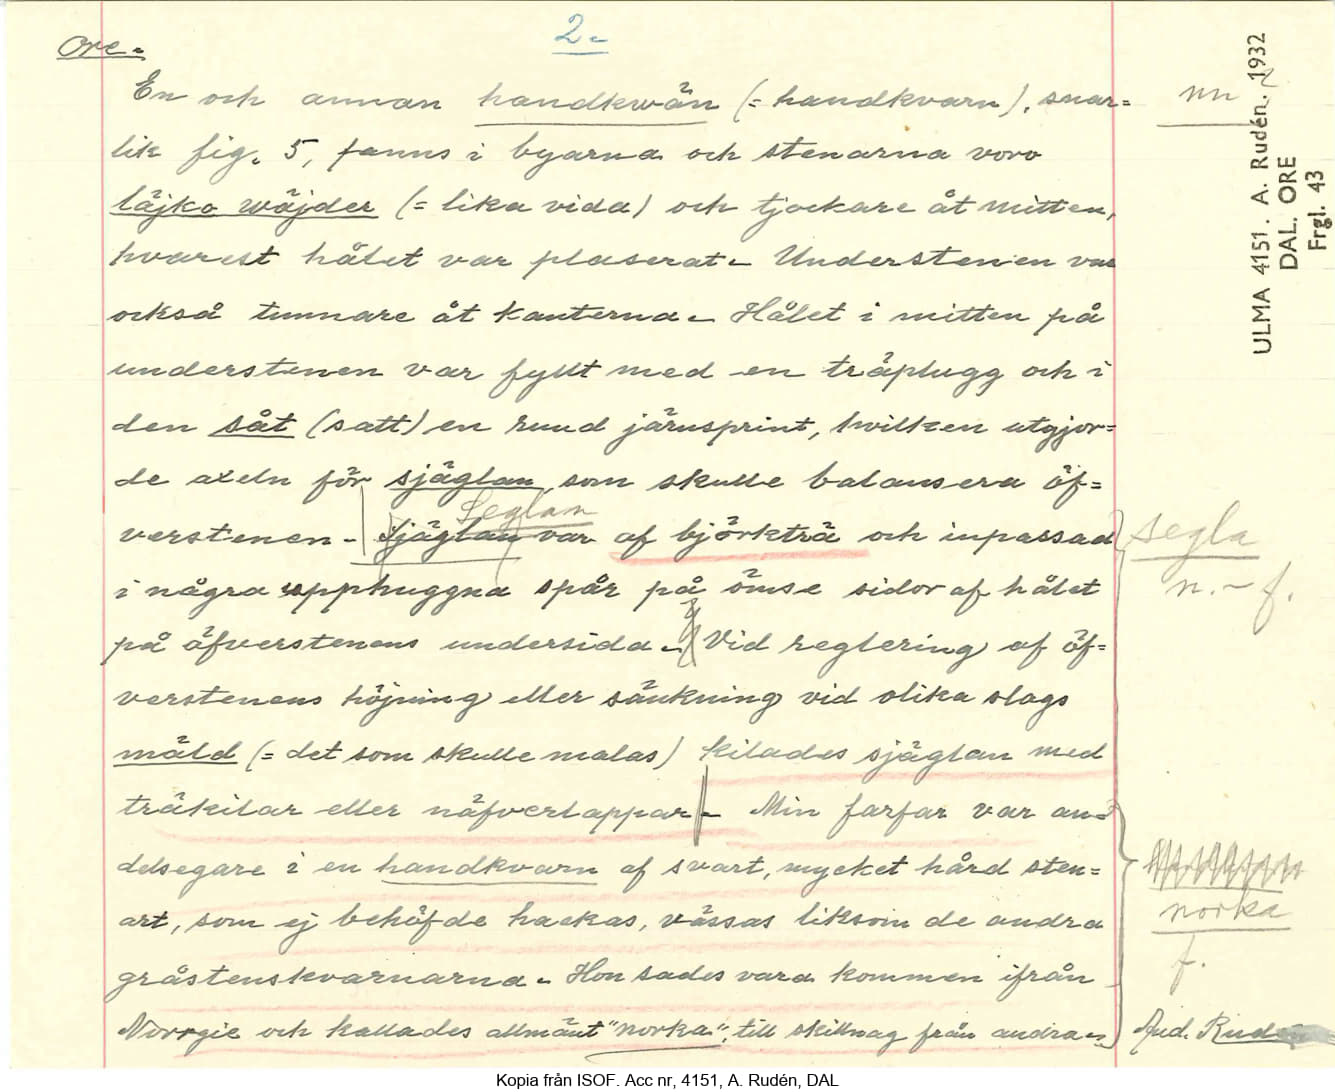 Ore.
2.
En och annan handkwän (= handkvarn), snar=
lik fig. 5, fanns i byarna och stenarna voro
läjko wäjder (= lika vida) och tjockare åt mitten,
hvarest hålet var plaserat. Understenen var
också tunnare åt kanterna. Hålet i mitten på
understenen var fyllt med en träplugg och i
den såt (satt) en rund järnsprint, hvilken utgjor=
de axeln för sjäglan som skulle balansera öf=
Seglan
verstenen. Sjäglan var af björkträ och inpassad
i några upphuggna spår på ömse sidor af hålet
på öfverstenens undersida. Vid reglering af öf=
verstenens höjning eller sänkning vid olika slags
mäld (= det som skulle malas) kilades sjäglan med
träkilar eller näfverlappar. Min farfar var an=
delsegare i en handkvarn af svart, mycket hård sten=
art, som ej behöfde hackas, vässas liksom de andra
gråstenskvarnarna. Hon sades vara kommen ifrån
Norrgie och kallades allmänt "norka", till skillnag från andra.
nn
segla
n. - f.
norka
f.
And. Rud
ULMA 4151. A. Rudén. 1932
DAL. ORE
Frgl. 43
Kopia från ISOF. Acc nr, 4151, A. Rudén, DAL